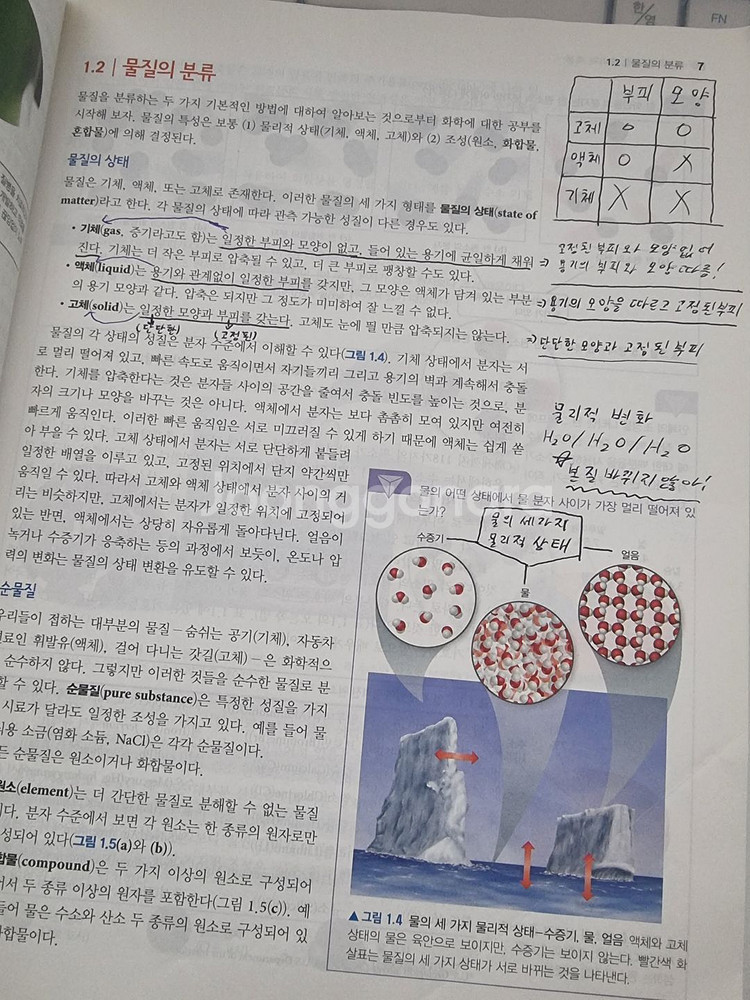 한/영
FN
1.2 | 물질의 분류 7
1.2 | 물질의 분류
물질을 분류하는 두 가지 기본적인 방법에 대하여 알아보는 것으로부터 화학에 대한 공부를
시작해 보자. 물질의 특성은 보통 (1) 물리적 상태(기체, 액체, 고체)와 (2) 조성(원소, 화합물,
혼합물)에 의해 결정된다.
물질의 상태
물질은 기체, 액체, 또는 고체로 존재한다. 이러한 물질의 세 가지 형태를 물질의 상태(state of
matter)라고 한다. 각 물질의 상태에 따라 관측 가능한 성질이 다른 경우도 있다.
• 기체(gas, 증기라고도 함)는 일정한 부피와 모양이 없고, 들어 있는 용기에 균일하게 채워
진다. 기체는 더 작은 부피로 압축될 수 있고, 더 큰 부피로 팽창할 수도 있다.
• 액체(liquid)는 용기와 관계없이 일정한 부피를 갖지만, 그 모양은 액체가 담겨 있는 부분
의 용기 모양과 같다. 압축은 되지만 그 정도가 미미하여 잘 느낄 수 없다.
• 고체(solid)는 일정한 모양과 부피를 갖는다. 고체도 눈에 띌 만큼 압축되지는 않는다.
(단단한) (고정된)
물질의 각 상태의 성질은 분자 수준에서 이해할 수 있다(그림 1.4). 기체 상태에서 분자는 서
로 멀리 떨어져 있고, 빠른 속도로 움직이면서 자기들끼리 그리고 용기의 벽과 계속해서 충돌
한다. 기체를 압축한다는 것은 분자들 사이의 공간을 줄여서 충돌 빈도를 높이는 것으로, 분
자의 크기나 모양을 바꾸는 것은 아니다. 액체에서 분자는 보다 촘촘히 모여 있지만 여전히
빠르게 움직인다. 이러한 빠른 움직임은 서로 미끄러질 수 있게 하기 때문에 액체는 쉽게 쏟
아 부을 수 있다. 고체 상태에서 분자는 서로 단단하게 붙들려
일정한 배열을 이루고 있고, 고정된 위치에서 단지 약간씩만
움직일 수 있다. 따라서 고체와 액체 상태에서 분자 사이의 거
리는 비슷하지만, 고체에서는 분자가 일정한 위치에 고정되어
있는 반면, 액체에서는 상당히 자유롭게 돌아다닌다. 얼음이
녹거나 수증기가 응축하는 등의 과정에서 보듯이, 온도나 압
력의 변화는 물질의 상태 변환을 유도할 수 있다.
순물질
우리들이 접하는 대부분의 물질 – 숨쉬는 공기(기체), 자동차
료인 휘발유(액체), 걸어 다니는 갓길(고체) – 은 화학적으
순수하지 않다. 그렇지만 이러한 것들을 순수한 물질로 분
할 수 있다. 순물질(pure substance)은 특정한 성질을 가지
시료가 달라도 일정한 조성을 가지고 있다. 예를 들어 물
용 소금(염화 소듐, NaCl)은 각각 순물질이다.
든 순물질은 원소이거나 화합물이다.
원소(element)는 더 간단한 물질로 분해할 수 없는 물질
다. 분자 수준에서 보면 각 원소는 한 종류의 원자로만
성되어 있다(그림 1.5(a)와 (b)).
합물(compound)은 두 가지 이상의 원소로 구성되어
서 두 종류 이상의 원자를 포함한다(그림 1.5(c)). 예
들어 물은 수소와 산소 두 종류의 원소로 구성되어 있
합물이다.
부피 모양
고체 O O
액체 O X
기체 X X
⇒ 고정된 부피와 모양 없어
용기의 부피와 모양 따름!
⇒ 용기의 모양을 따르고 고정된 부피
⇒ 단단한 모양과 고정된 부피
물리적 변화
H₂O/H₂O/H₂O
☆본질 바뀌지 않아!
물의 어떤 상태에서 물 분자 사이가 가장 멀리 떨어져 있
는가?
물의 세가지
물리적 상태
수증기
물
얼음
▲ 그림 1.4 물의 세 가지 물리적 상태–수증기, 물, 얼음 액체와 고체
상태의 물은 육안으로 보이지만, 수증기는 보이지 않는다. 빨간색 화
살표는 물질의 세 가지 상태가 서로 바뀌는 것을 나타낸다.